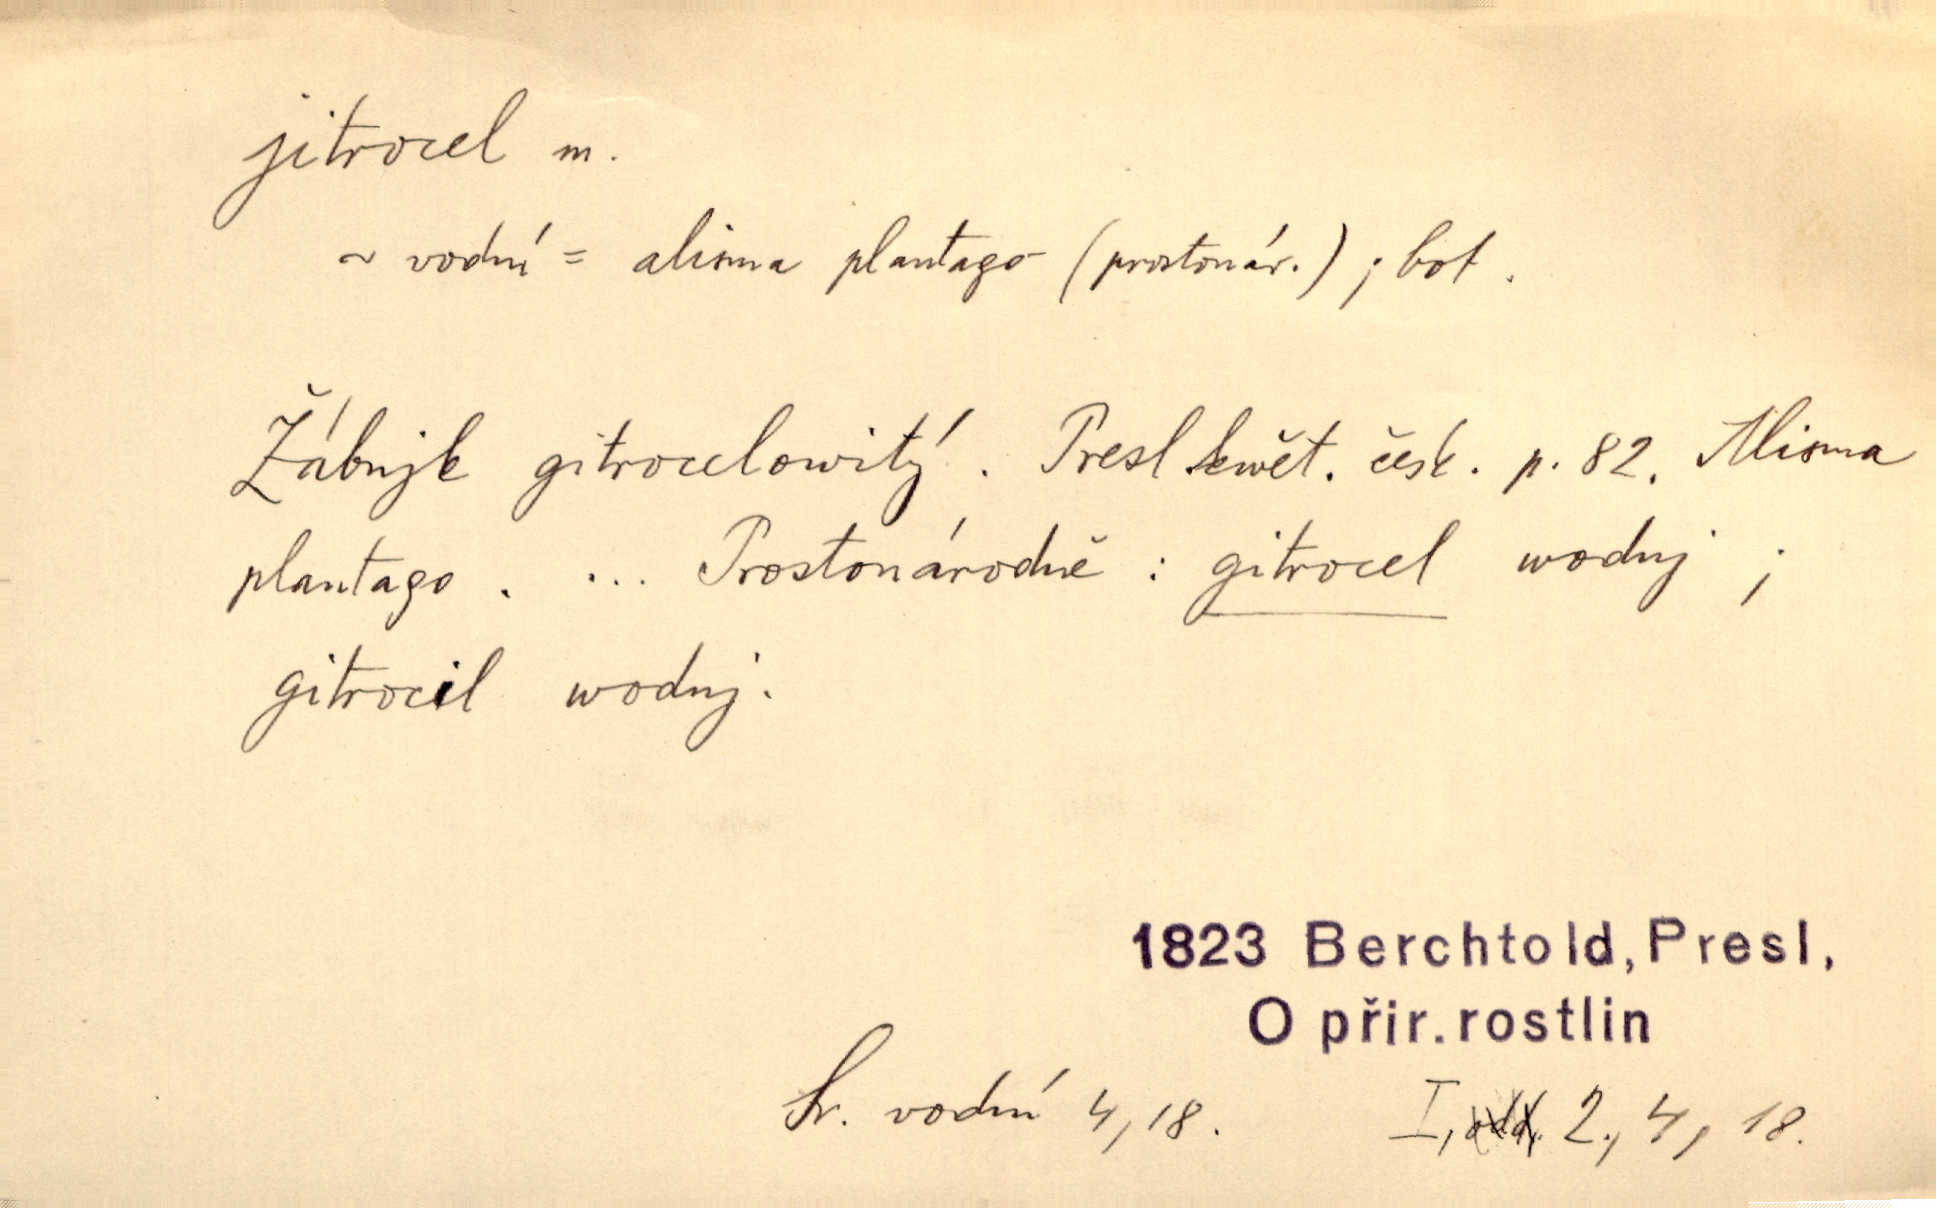 jitrocel m.
~ vodní = alisma plantago (prostonár.); bot.
Žábnjk gitrocelowitý. Presl kwět. česk. p. 82. Alisma
plantago. ... Prostonárodně: gitrocel wodnj;
gitrocil wodnj.
1823 Berchtold, Presl,
O přir. rostlin
Sr. vodní 4, 18.
I, 2., 4, 18.